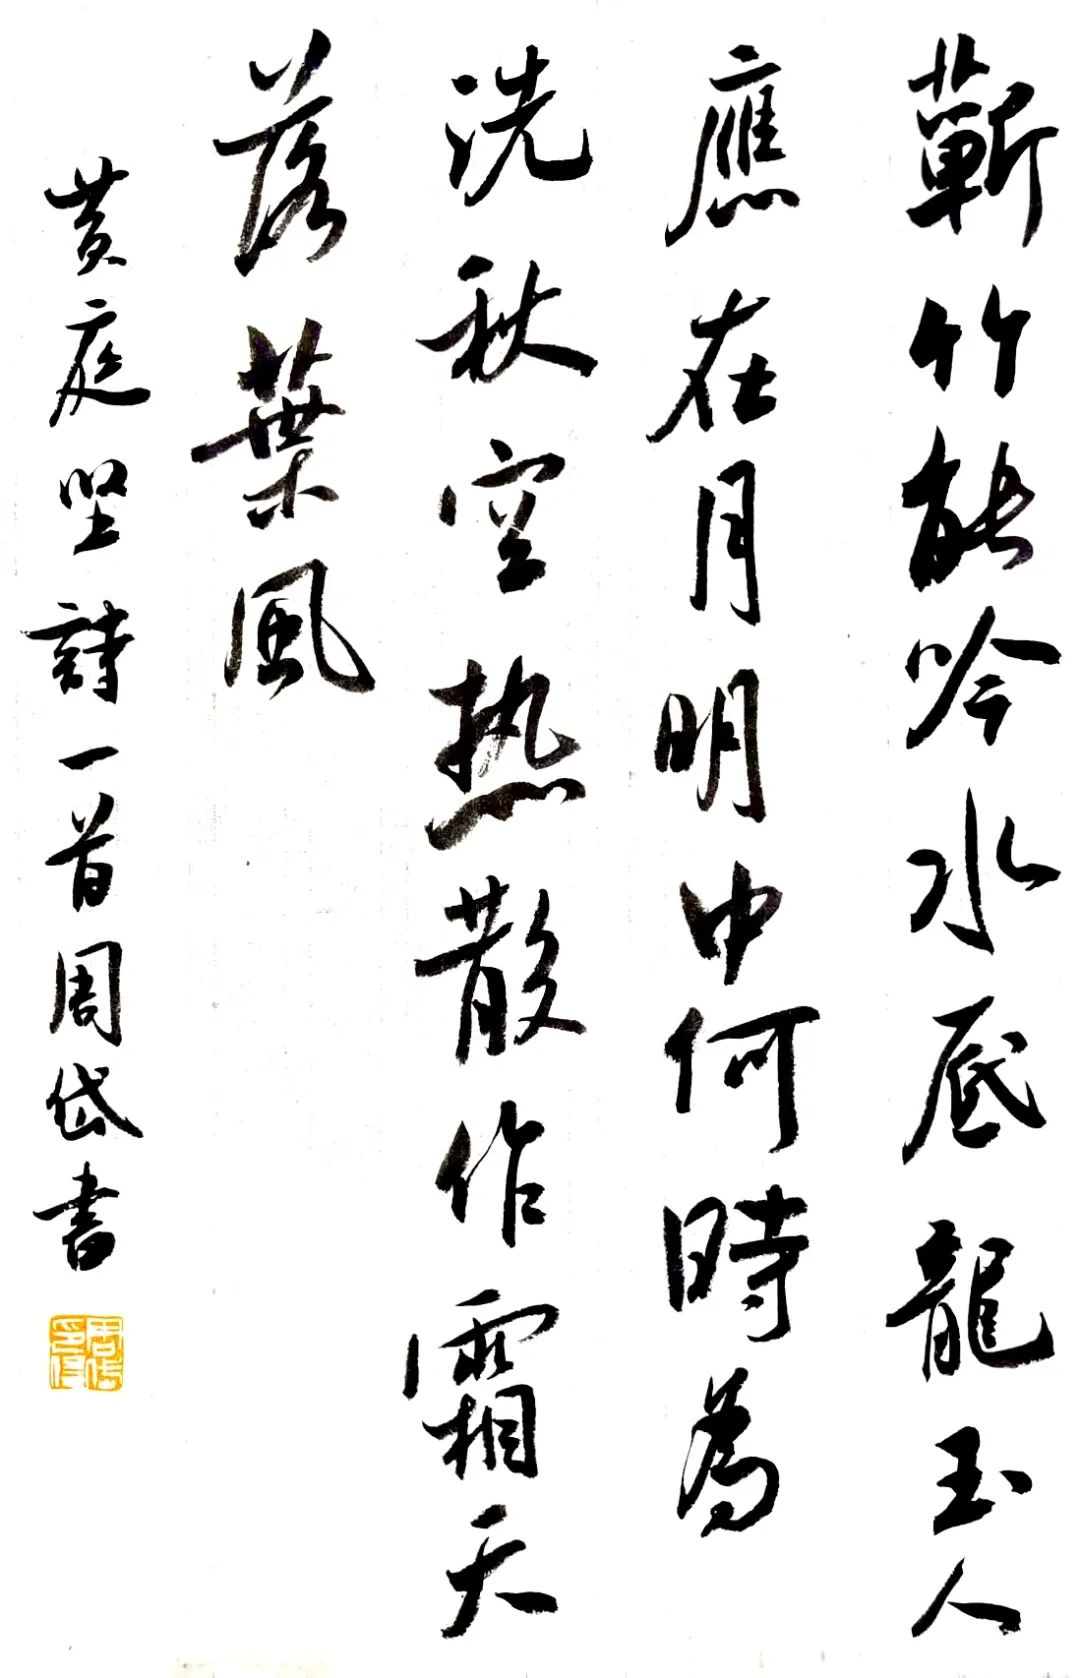 蘄竹能吟水底龍玉人
應在月明中何時為
洗秋空热散作霜天
落葉風
黄庭坚詩一首周岱書